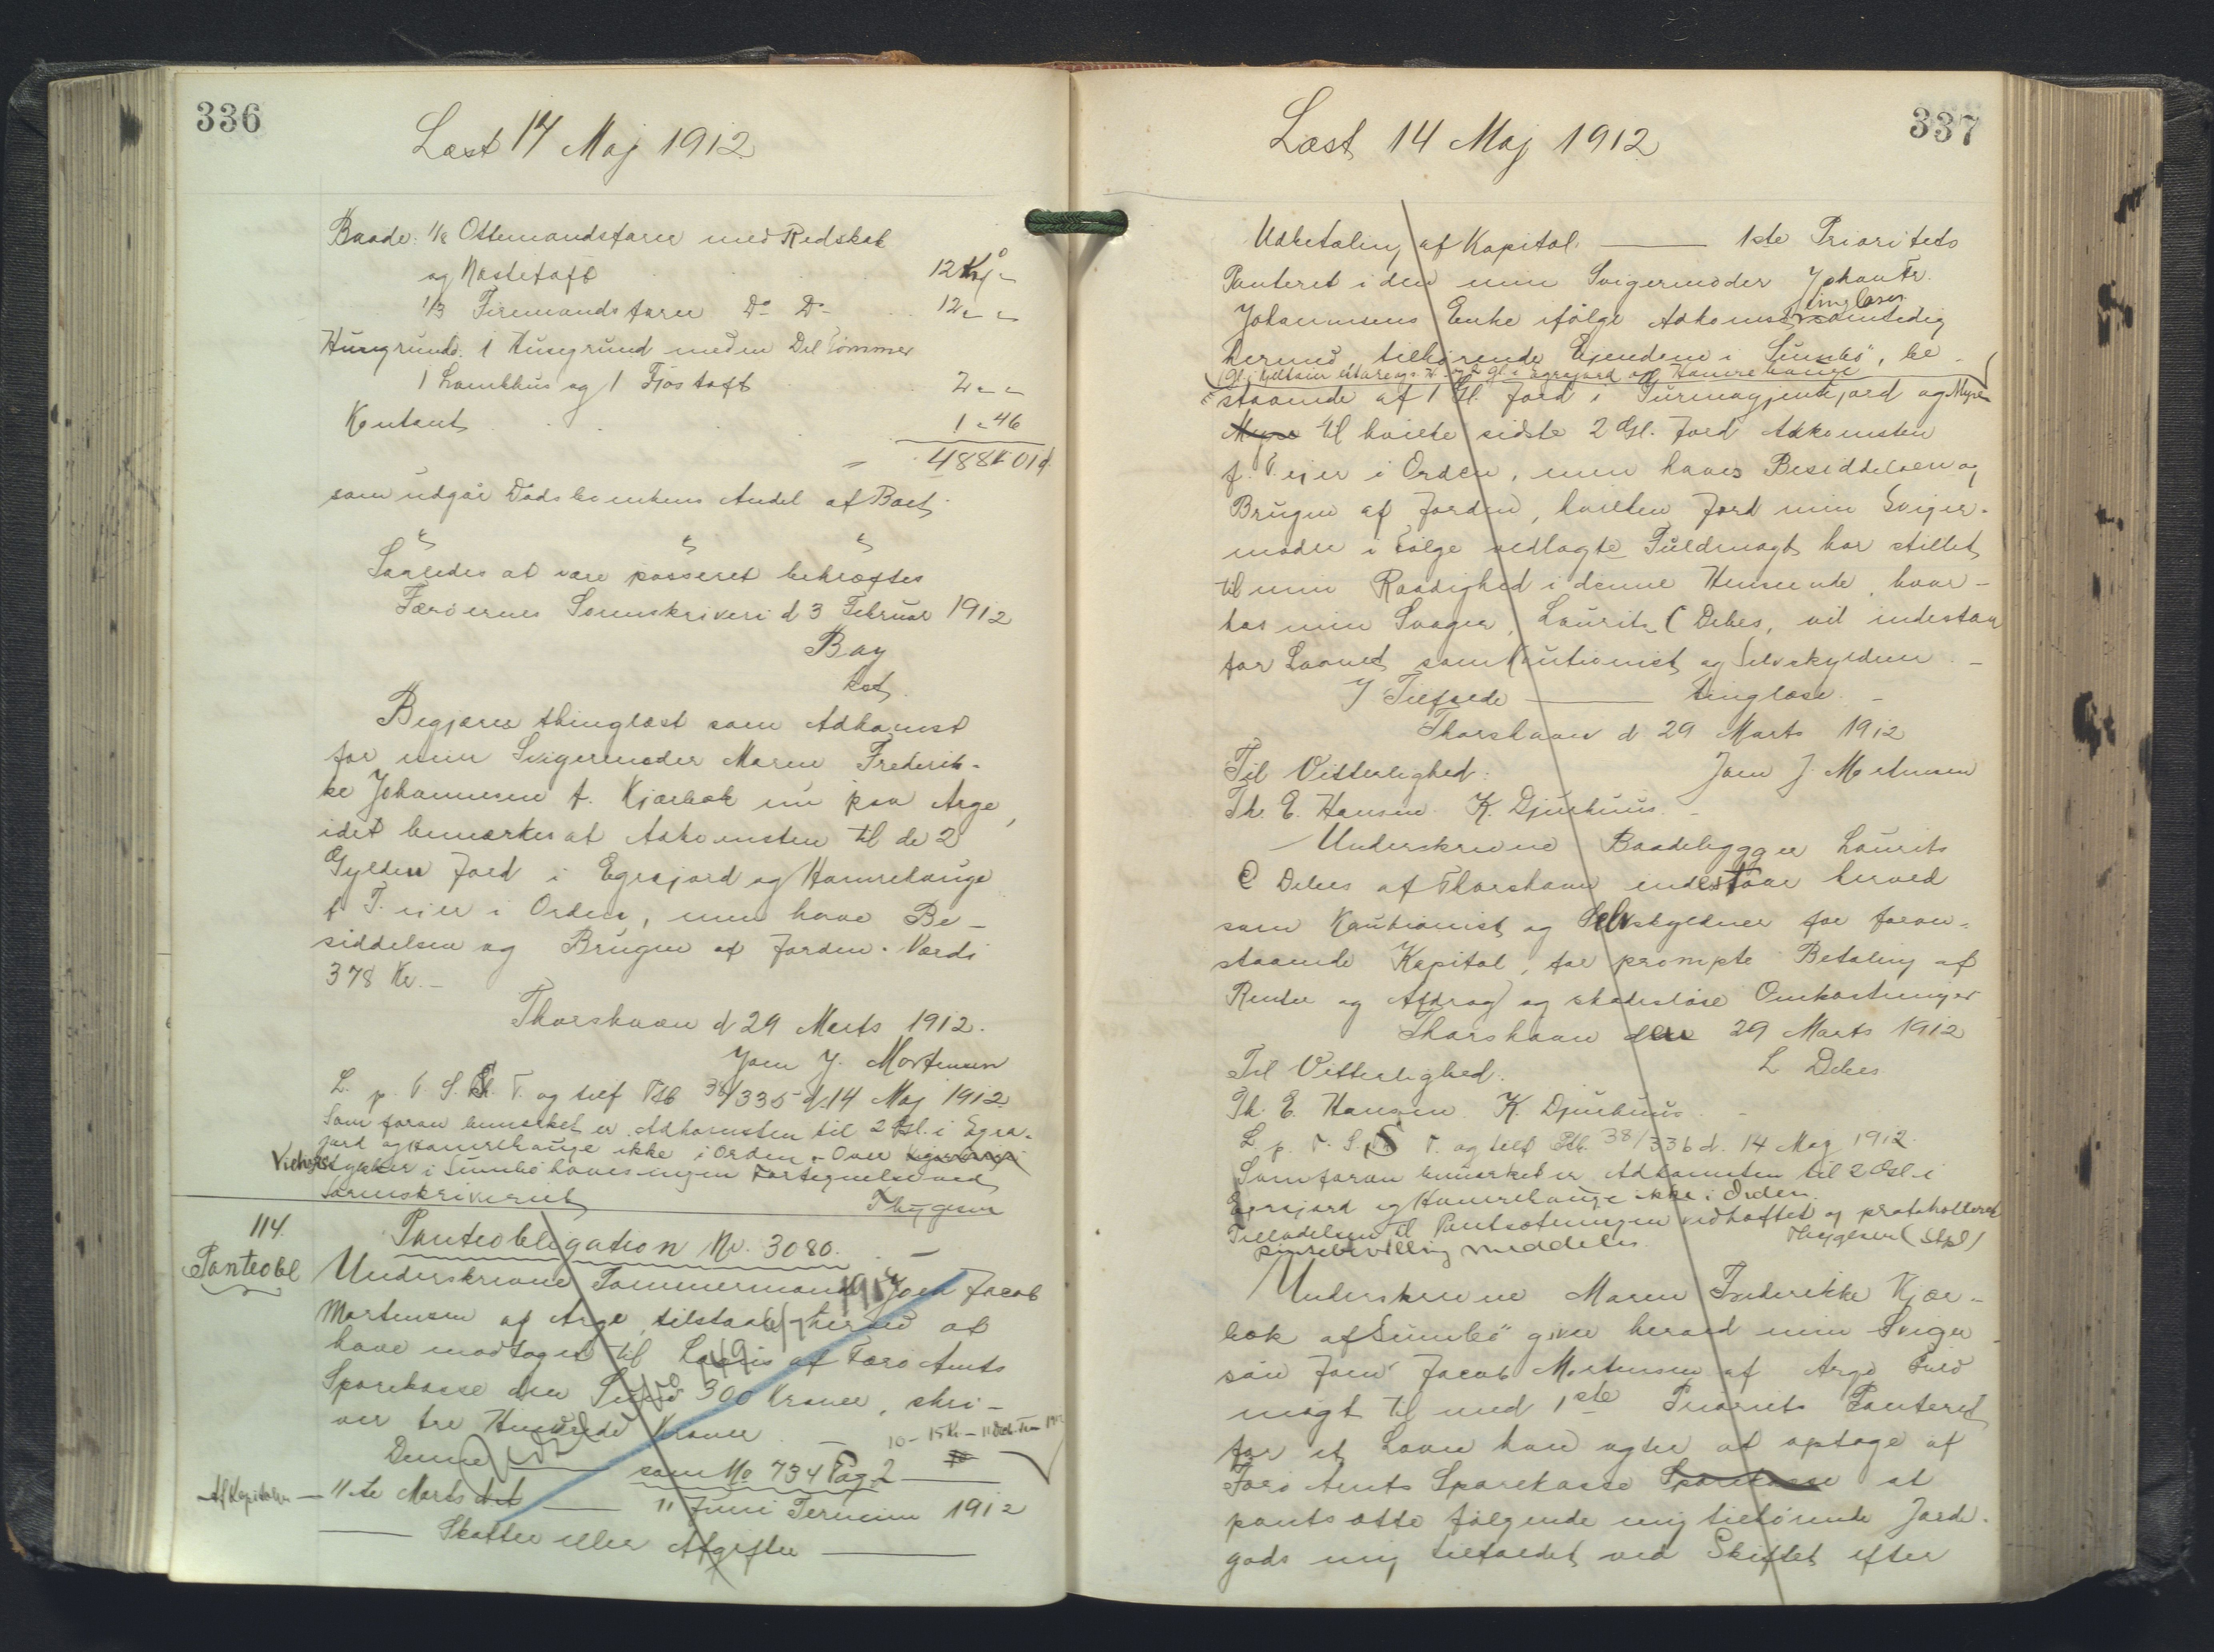 336
Læst 14 Maj 1912
Baade: 1/8 Ottemandsfarer med Redskab
og Nøstetoft 12 Kr "
1/3 Firemandsfarer Do Do 12 " "
Husegrunde. 1 Husegrund med en Del Tømmer
1 Lambhus og 1 Fjøstoft 2 " "
Kontant 1 " 46
488 K 01 ø
som udgør Dødsboenkens Andel af Boet
Saaledes at være passeret bekræftes
Færøernes Sorenskriveri d 3 Februar 1912
Bay
kst
Begjæres thinglæst som Adkomst
for min Svigermoder Maren Frederik-
ke Johannesen f. Kjærbæk nu paa Arge,
idet bemærkes at Adkomsten til de 2
Gylden Jord i Egrajord og Hamrehauge
f T. ej er i Orden, men have Be-
siddelsen og Brugen af Jorden. Værdi
378 Kr.
Thorshavn d 29 Marts 1912.
Joen J. Mortensen
L. p. V. S. T. og tilf Ptb 38/335 d. 14 Maj 1912.
Som foran bemærket er Adkomsten til 2 Gl. i Egra-
jord og Hamrehauge ikke i Orden. Over
stykker i Sumbø haves ingen Fortegnelse ved
Sorenskriveriet
Thygesen
114.
Panteobl
Panteobligation No. 3080.
Underskrevne Tømmermand Joen Jacob
Mortensen af Arge, tilstaar herved at
have modtaget til Laans af Færø Amts
Sparekasse den Sum 300 Kroner, skri-
ver tre Hundrede Kroner
Denne som No 734 Pag 2
Af Kapitalen 11te Marts 11 Juni Termin 1912
Skatter eller Afgifter
337
Læst 14 Maj 1912
Udbetaling af Kapital 1ste Prioritets
Panteret i den min Svigermoder Johan Fr.
tinglæses
Johannesens Enke ifølge Adkomst samtidig
hermed, tilhørende Ejendom i Sumbø, be-
2 Gl. i Egrajord og Hamrehauge
staaende af 1 Gl. Jord i Turmagjendejord og Myre
Myre til hvilke sidste 2 Gl. Jord Adkomsten
f. T. ej er i Orden, men haves Besiddelsen og
Brugen af Jorden, hvilken Jord min Sviger-
moder i Følge vedlagte Fuldmagt har stillet
til min Raadighed i denne Henseende, hvor-
hos min Svoger, Laurits C Debes, vil indestaa
for Laanet som Kautionist og Selvskyldner
I Tilfælde tinglæse.
Thorshavn d 29 Marts 1912
Til Vitterlighed: Joen J. Mortensen
Th. E. Hansen. K. Djurhuus.
Underskrevne Baadebygger Laurits
C Debes af Thorshavn indestaar herved
som Kautionist og Selvskyldner for foran-
staaende Kapital, for prompte Betaling af
Renter og Afdrag og skadesløse Omkostninger
Thorshavn den 29 Marts 1912
Til Vitterlighed. L Debes
Th. E. Hansen. K. Djurhuus
L. p. V. S. T. og tilf Ptb. 38/336 d. 14 Maj 1912.
Som foran bemærket er Adkomsten til 2 Gl. i
Egrajord og Hamrehauge ikke i Orden.
Tilladelsen til Pantsætningen vedhæftet og protokolleret
meddeles. Thygesen (Stpl)
Underskrevne Maren Frederikke Kjær-
bæk af Sumbø giver herved min Sviger-
søn Joen Jacob Mortensen af Arge Fuld
magt til med 1ste Priorits Panteret
for et Laan han agter at optage af
Færø Amts Sparekasse Sparekasse at
pantsætte følgende mig tilhørende Jorde-
gods mig tilfaldet ved Skiftet efter